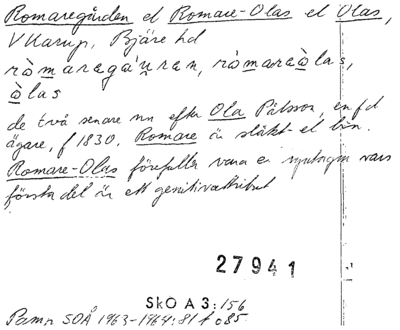 Romaregården el Romare-Olas el Olas,
V Karup, Bjäre hd
ròmaregáuren, ròmareòlas,
òlas
de två senare nn efter Ola Pålsson, en fd
ägare, f 1830. Romare är släkt- el bin.
Romare-Olas förefaller vara en vars
första del är ett genitivattribut
27941
SkO A 3:156
Pamp SOÅ 1963-1964:81 f o 85